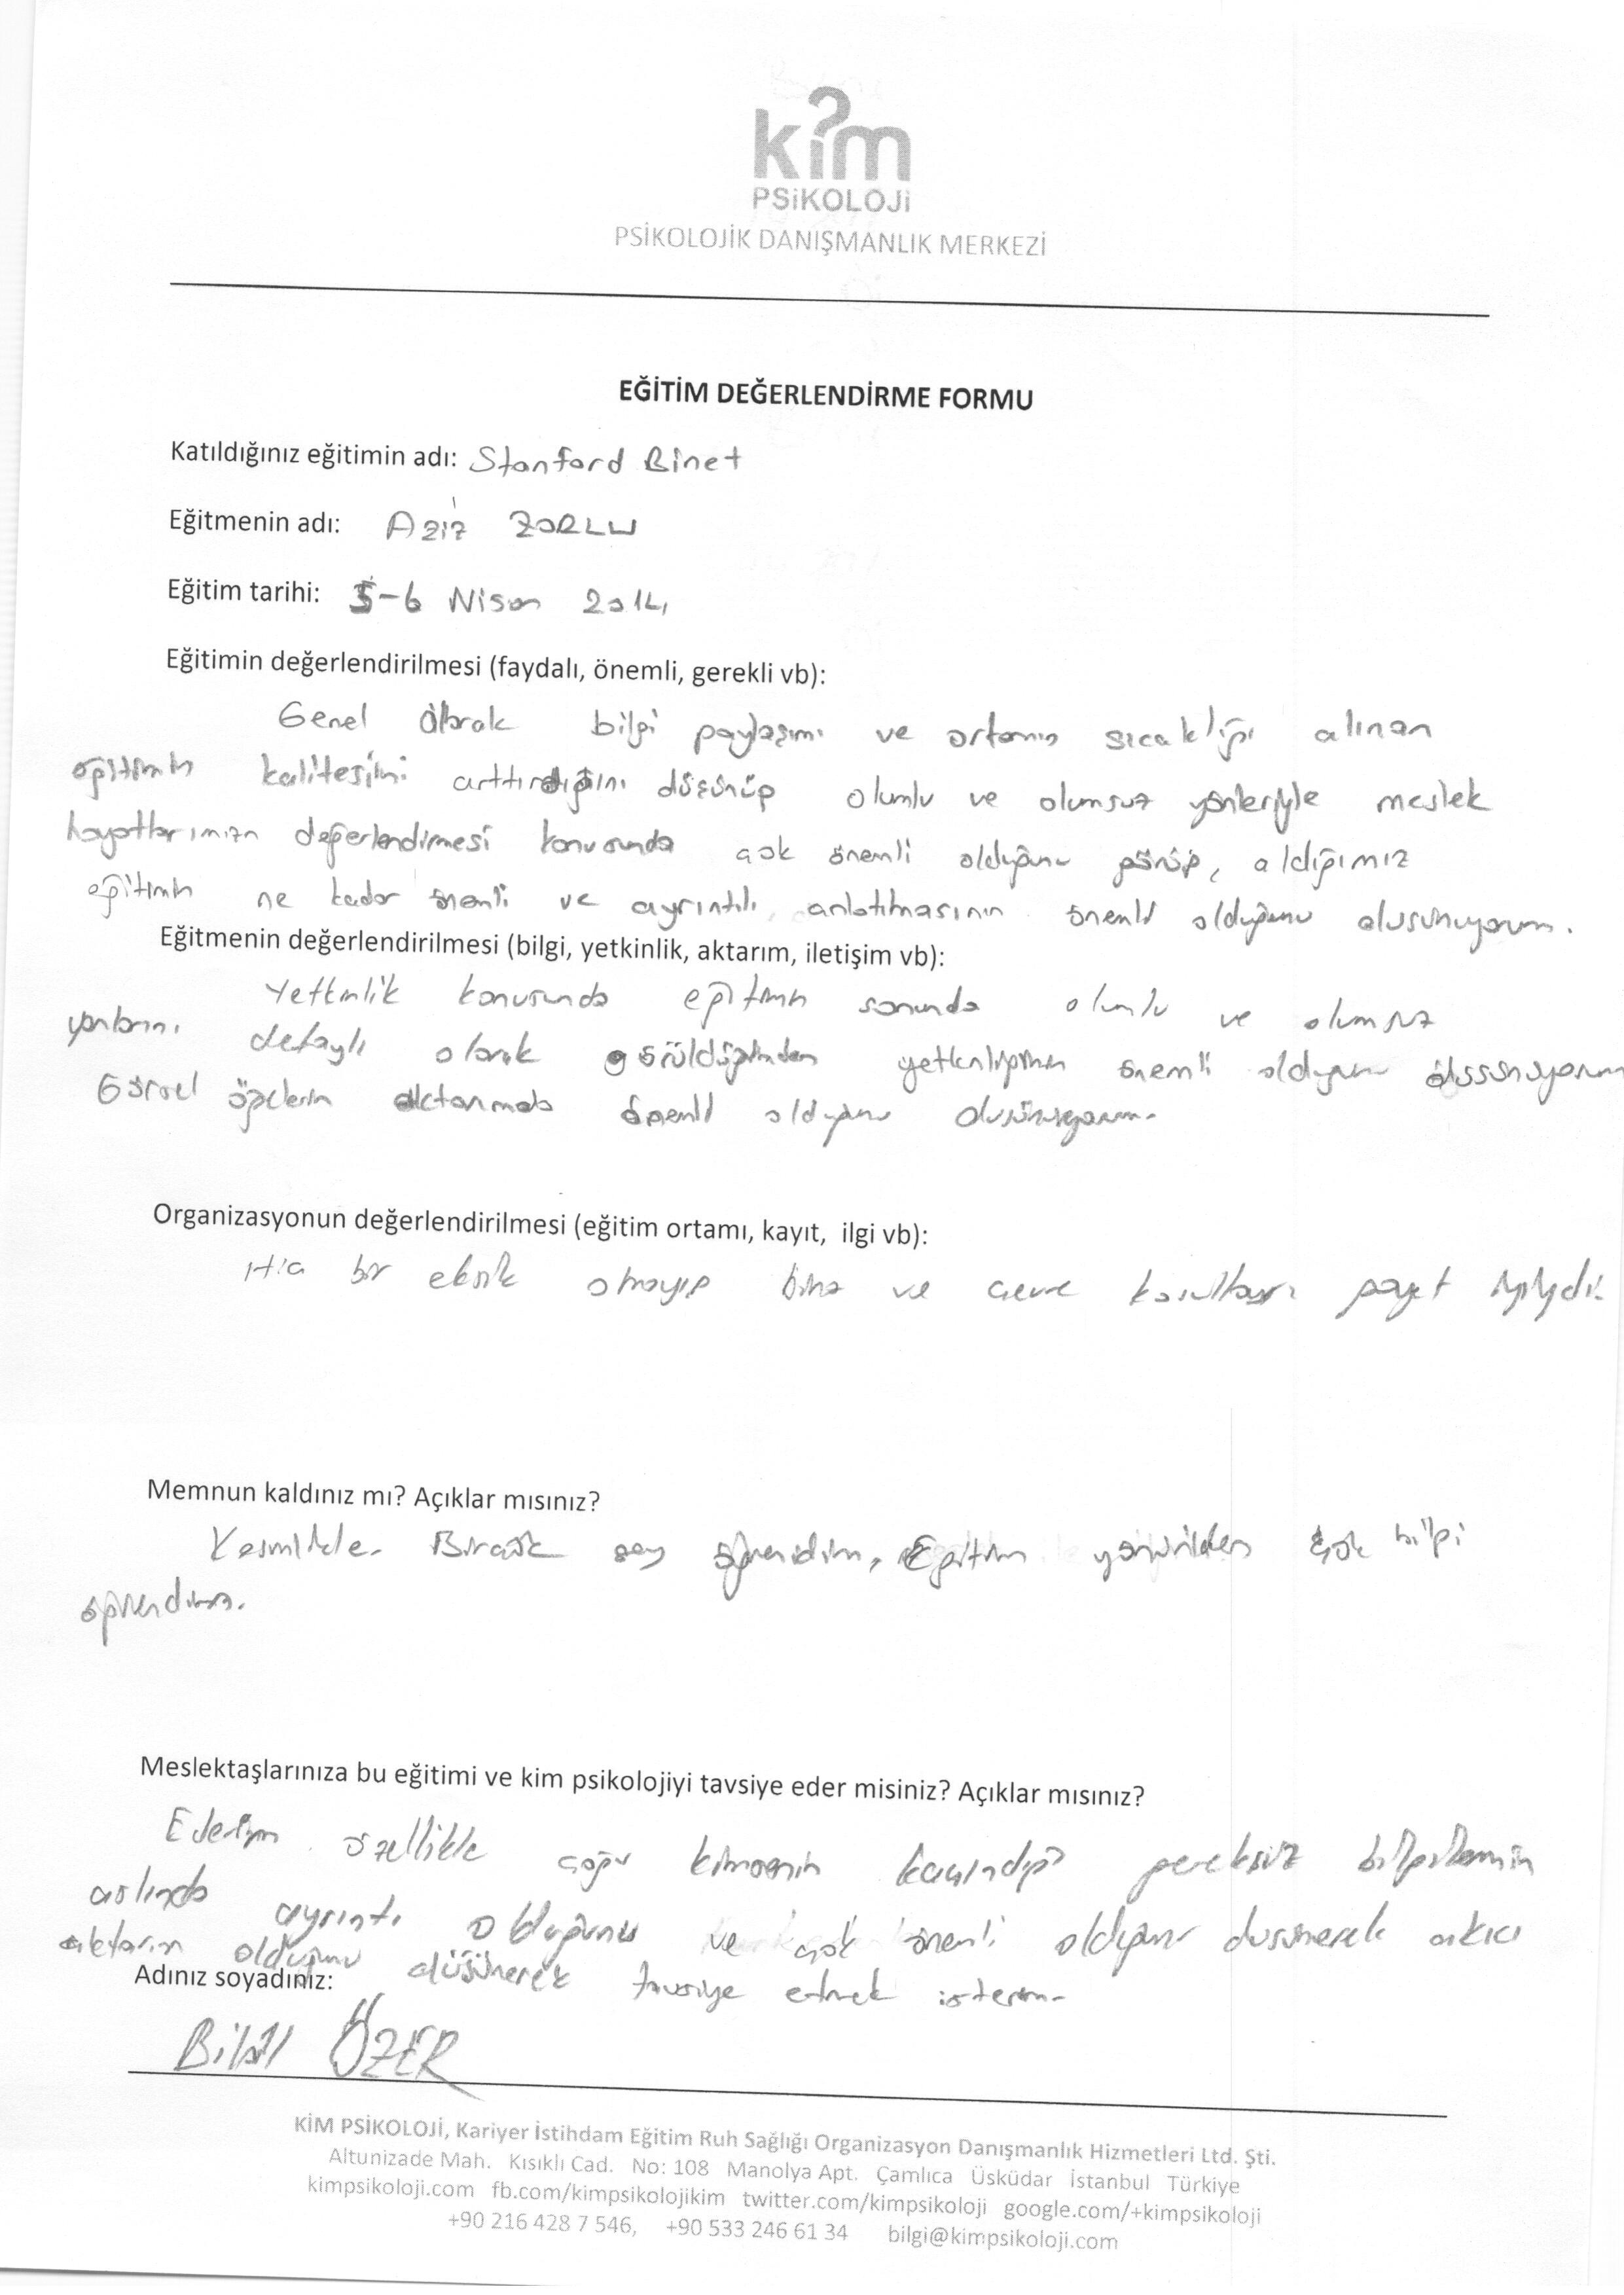 kim
PSiKOLOJi
PSİKOLOJİK DANIŞMANLIK MERKEZİ
EĞİTİM DEĞERLENDİRME FORMU
Katıldığınız eğitimin adı: Stanford Binet
Eğitmenin adı: Aziz ZORLU
Eğitim tarihi: 5-6 Nisan 2014
Eğitimin değerlendirilmesi (faydalı, önemli, gerekli vb):
Genel olarak bilgi paylaşımı ve ortamın sıcaklığı alınan
eğitimin kalitesini arttırdığını düşünüp olumlu ve olumsuz yönleriyle meslek
hayatlarımızın değerlendirmesi konusunda çok önemli olduğunu görüp, aldığımız
eğitimin ne kadar önemli ve ayrıntılı anlatılmasının önemli olduğunu düşünüyorum.
Eğitmenin değerlendirilmesi (bilgi, yetkinlik, aktarım, iletişim vb):
Yetkinlik konusunda eğitimin sonunda olumlu ve olumsuz
yanlarını detaylı olarak görüldüğünden yetkinliğinin önemli olduğunu düşünüyorum
Görsel öğelerin aktarımda önemli olduğunu düşünüyorum.
Organizasyonun değerlendirilmesi (eğitim ortamı, kayıt, ilgi vb):
Hiç bir eksik olmayıp bina ve çevre koşulları gayet iyiydi.
Memnun kaldınız mı? Açıklar mısınız?
Kesinlikle. Birçok şey öğrendim, Eğitim yönünden çok bilgi
öğrendim.
Meslektaşlarınıza bu eğitimi ve kim psikolojiyi tavsiye eder misiniz? Açıklar mısınız?
Ederim özellikle çoğu kimsenin kaçındığı gereksiz bilgilerinin
aslında ayrıntı olduğunu ve çok önemli olduğunu düşünerek akıcı
aktarım olduğunu düşünerek tavsiye etmek isterim.
Adınız soyadınız:
Bilal ÖZER
KİM PSİKOLOJİ, Kariyer İstihdam Eğitim Ruh Sağlığı Organizasyon Danışmanlık Hizmetleri Ltd. Şti.
Altunizade Mah. Kısıklı Cad. No: 108 Manolya Apt. Çamlıca Üsküdar İstanbul Türkiye
kimpsikoloji.com fb.com/kimpsikolojikim twitter.com/kimpsikoloji google.com/+kimpsikoloji
+90 216 428 7 546, +90 533 246 61 34 bilgi@kimpsikoloji.com